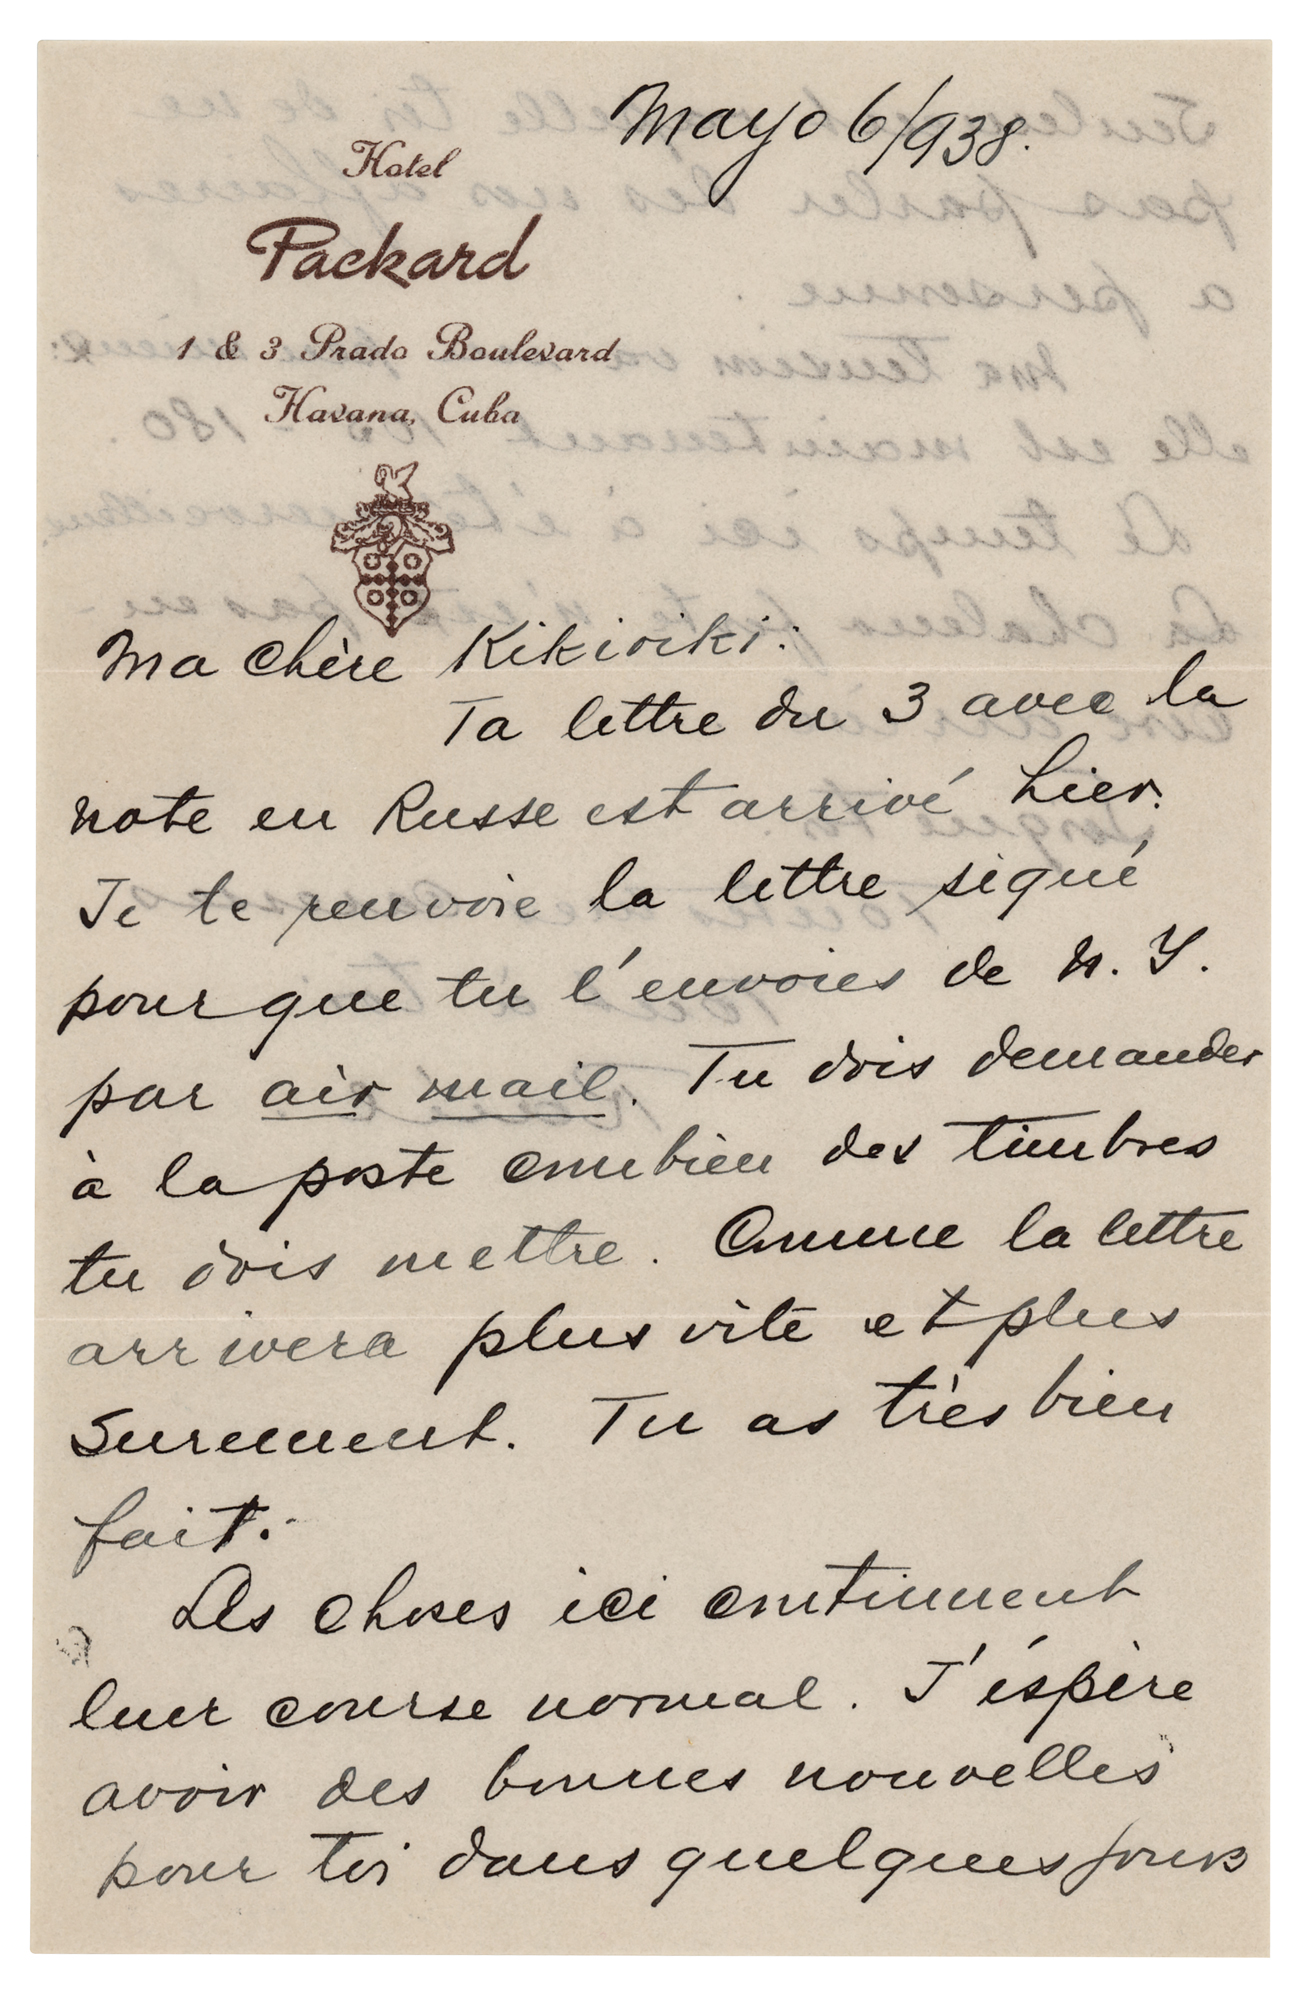 Mayo 6/938.
Hotel
Packard
1 & 3 Prado Boulevard
Havana, Cuba
Ma chère Kikiriki:
Ta lettre du 3 avec la
note en Russe est arrivé hier.
Je te renvoie la lettre signé
pour que tu l'envoies de N. Y.
par air mail. Tu dois demander
à la poste combien des timbres
tu dois mettre. Comme la lettre
arrivera plus vite et plus
surement. Tu as très bien
fait.
Les choses ici continuent
luer course normal. J'éspère
avoir des bonnes nouvelles
pour toi dans quelques jours